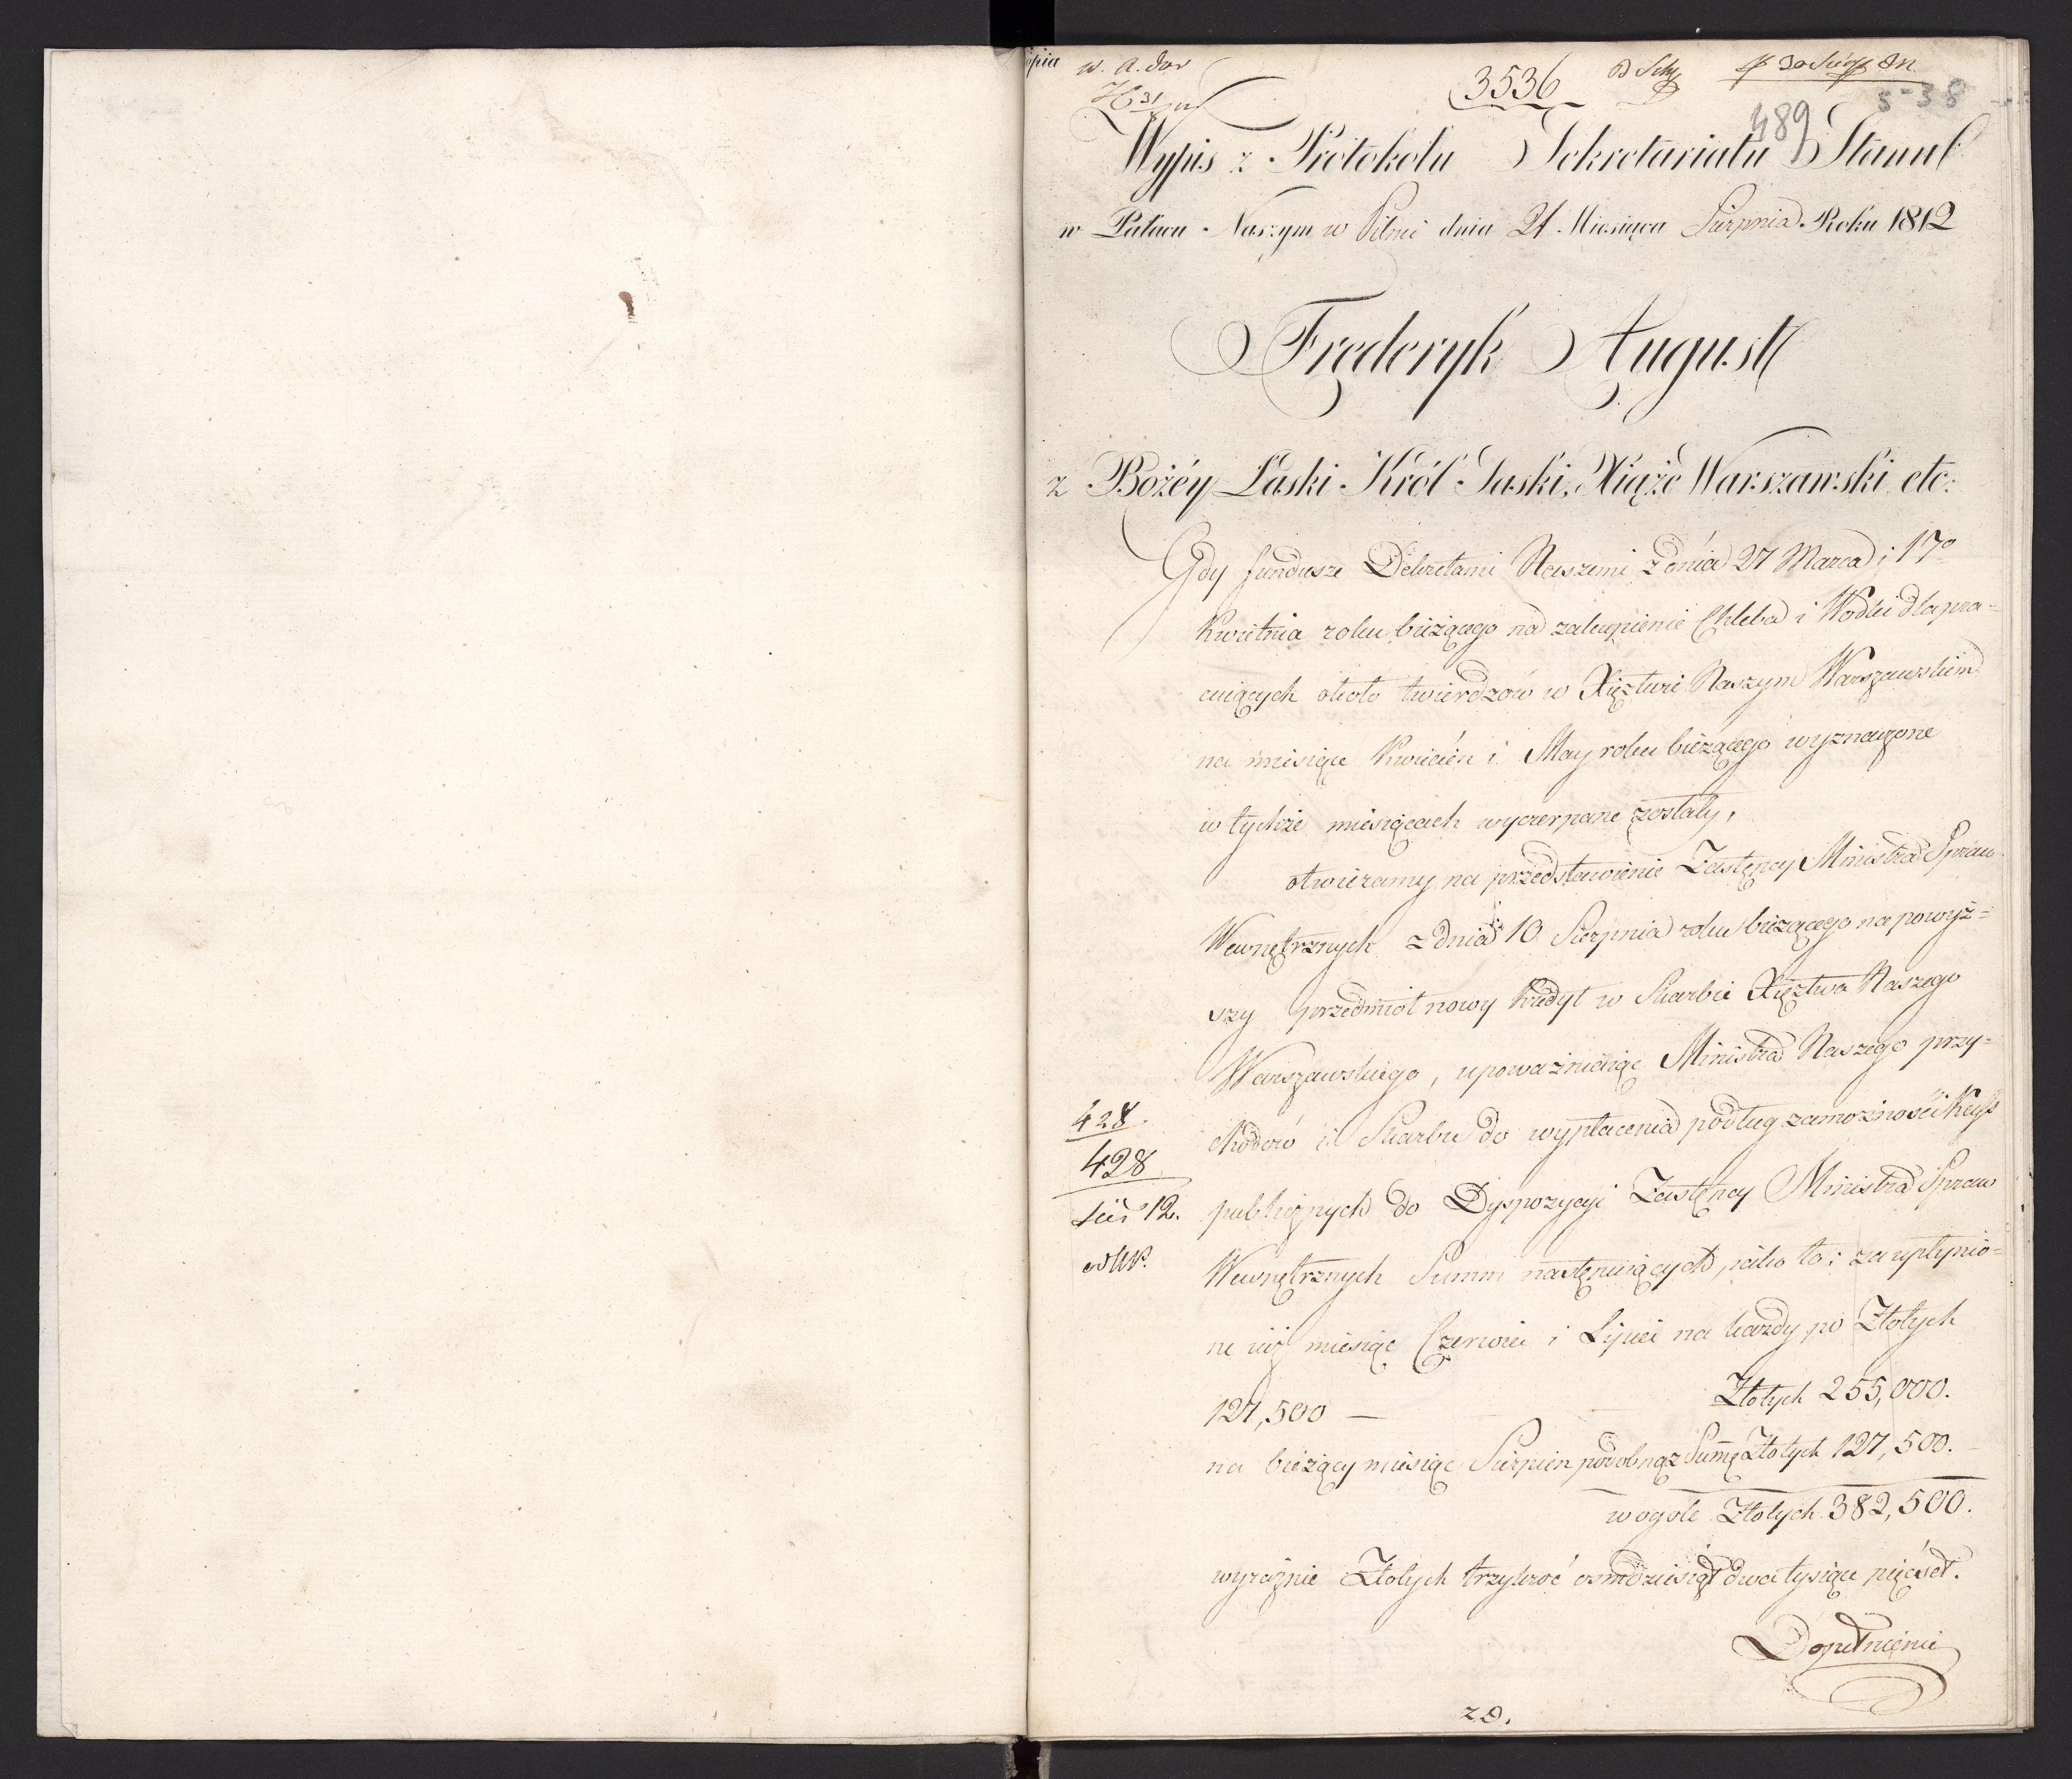 opia
3536
489
5-38
Wypis z Protokołu Sekretariatu Stanu
w Pałacu Naszym w Pilnic dnia 21 Miesiąca Sierpnia Roku 1812
Fryderyk August
z Bożéy Łaski Król Saski, Xiąże Warszawski etc:
Gdy fundusze Dekretami Naszemi z dnia 27 Marca i 17º
Kwietnia roku bieżącego na zakupienie Chleba i Wodki dla pra=
cuiących około twierdzów w Xięztwie Naszym Warszawskiem
na miesiące Kwiecień i May roku bieżącego wyznaczone
w tychże miesiącach wyczerpane zostały,
otwieramy na przedstawienie Zastępcy Ministra Spraw
Wewnętrznych z dnia 10 Sierpnia roku bieżącego na powyż=
szy przedmiot nowy Kredyt w Skarbie Xięztwa Naszego
Warszawskiego, upoważniaiąc Ministra Naszego przy=
chodów i Skarbu do wypłacenia podług zamożności Kass
428
428
publicznych do Dyspozycyi Zastępcy Ministra Spraw
Wewnętrznych Summ następuiących, iako to: za upłynio=
ne iuż miesiące Czerwiec i Lipiec na każdy po Złotych
127,500 — Złotych 255,000.
na bieżący miesiąc Sierpien podobnąż Summę Złotych 127,500.
wogole Złotych 382,500.
wyraźnie Złotych trzykroć osmdziesiąt dwa tysiące pięćset.
Dopełnienie